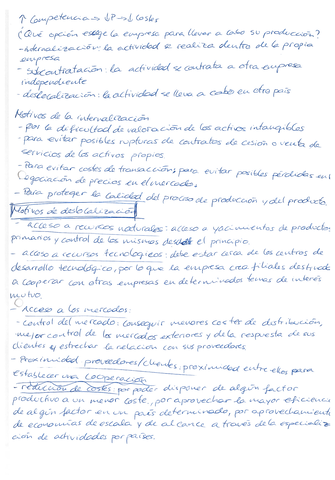 ↑ Competencia → ↓P → ↓ Costes
¿Qué opción escoge la empresa para llevar a cabo su producción?
- Internalización: la actividad se realiza dentro de la propia
empresa
- Subcontratación: la actividad se contrata a otra empresa
independiente
- deslocalización: la actividad se lleva a cabo en otro país
Motivos de la internalización
- Por la dificultad de valoración de los activos intangibles
- para evitar posibles rupturas de contratos de cesión o venta de
servicios de los activos propios
- Para evitar costes de transacción, para evitar posibles pérdidas en la
negociación de precios en el mercado.
- Para proteger la calidad del proceso de producción y del producto.
Motivos de deslocalización
- acceso a recursos naturales: acceso a yacimientos de productos
primarios y control de los mismos desde el principio.
- acceso a recursos tecnologicos: debe estar cerca de los centros de
desarrollo tecnológico, por lo que la empresa crea filiales destinadas
a cooperar con otras empresas en determinados temas de interés
mutuo.
- Acceso a los mercados:
- control del mercado: conseguir menores costes de distribución,
mejor control de los mercados exteriores y de la respuesta de sus
clientes y estrechar la relación con sus proveedores
- Proximidad proveedores/clientes: proximidad entre ellos para
establecer una cooperación
- reducción de costes: por poder disponer de algún factor
productivo a un menor coste, por aprovechar la mayor eficiencia
de algún factor en un país determinado, por aprovechamiento
de economías de escala y de alcance a través de la especializa-
ción de actividades por países.